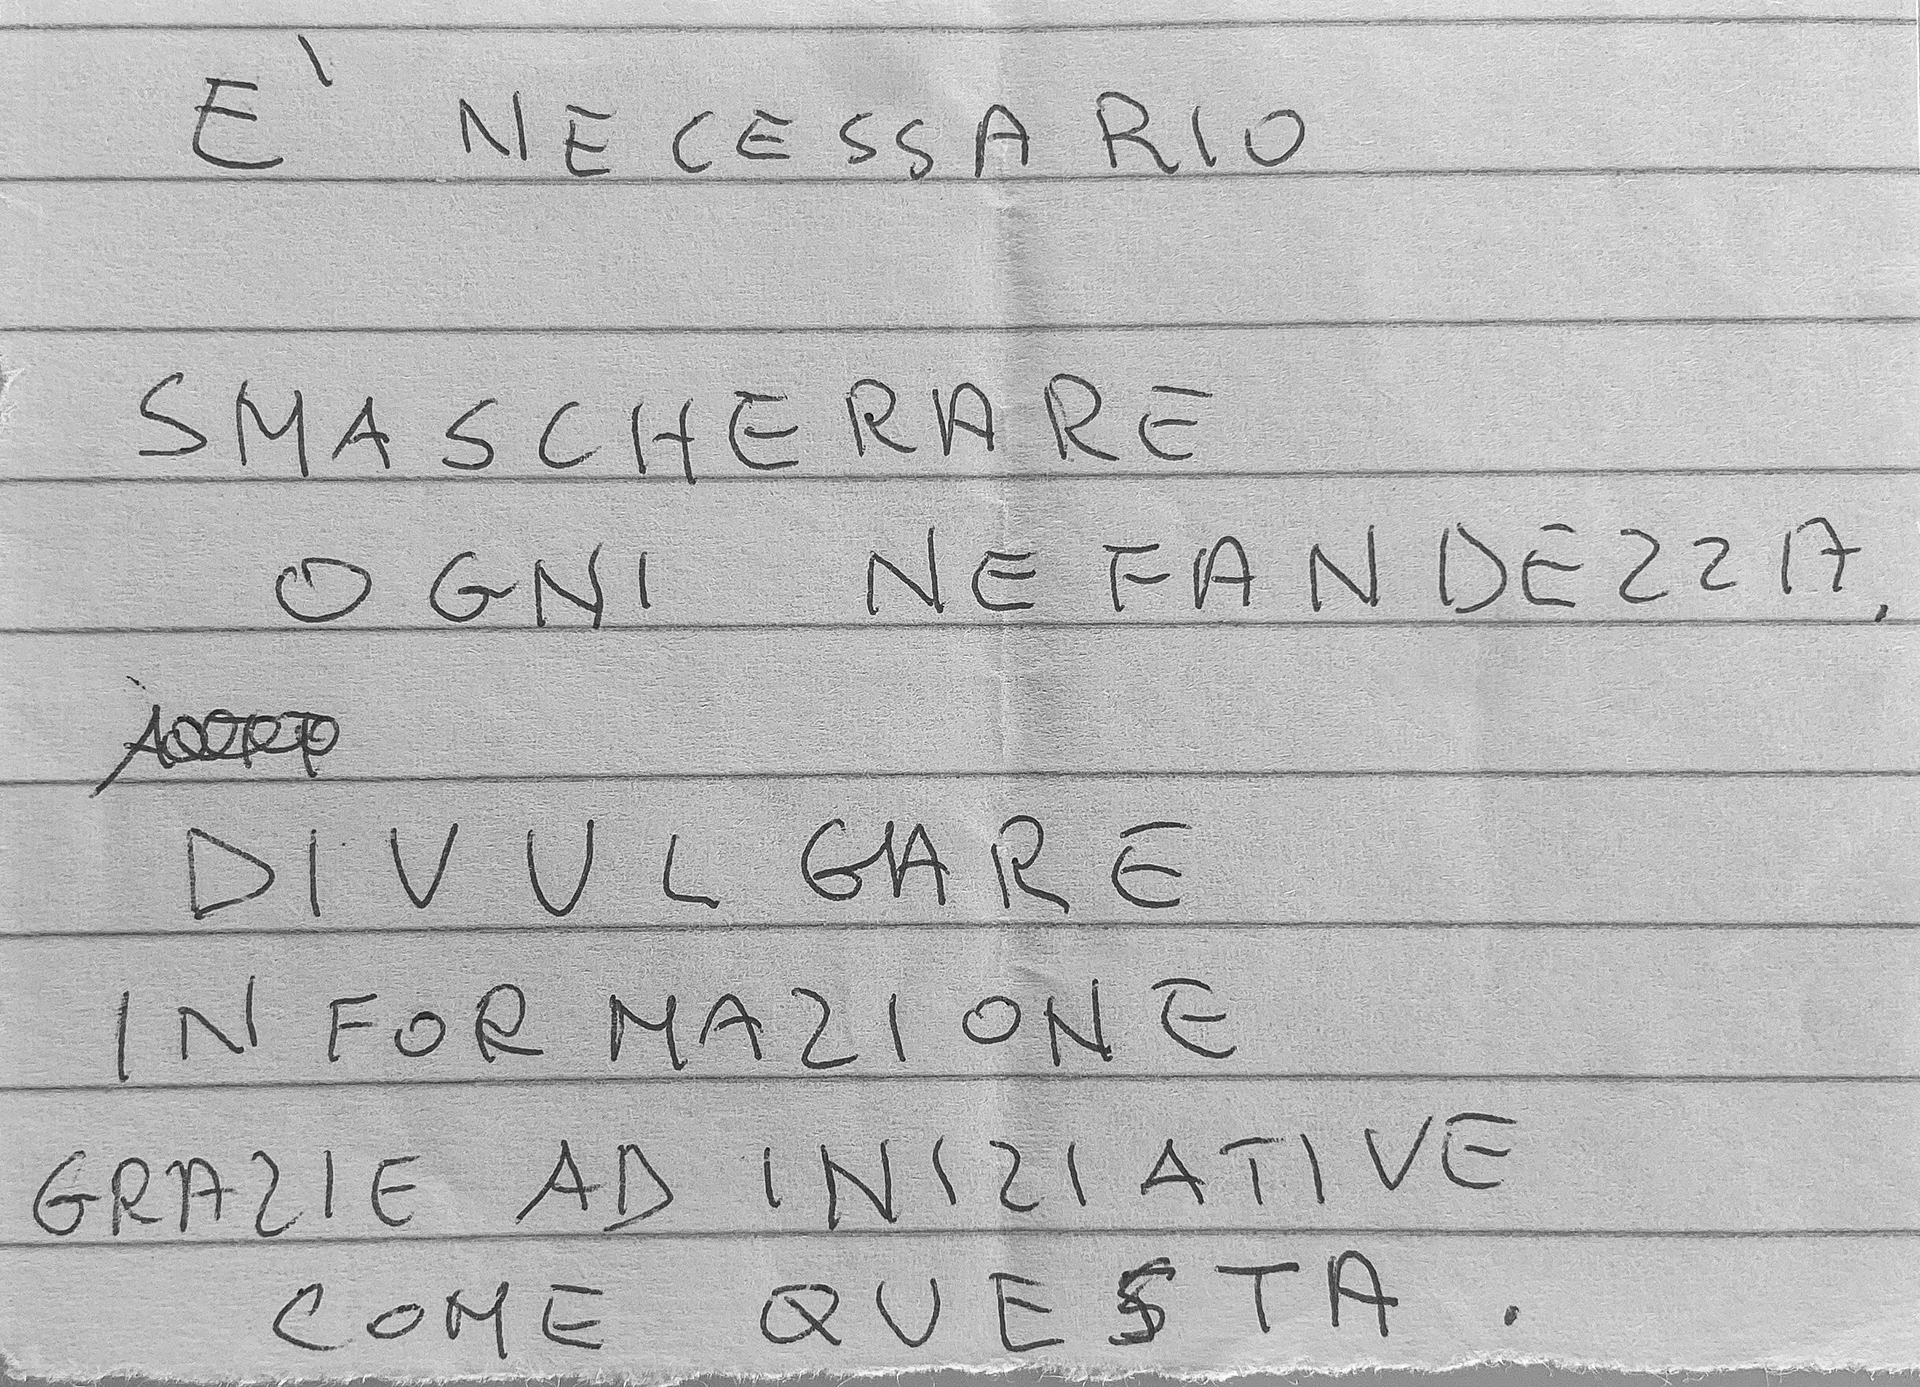 E' NECESSARIO
SMASCHERARE
OGNI NEFANDEZZA,
DIVULGARE
INFORMAZIONE
GRAZIE AD INIZIATIVE
COME QUESTA.